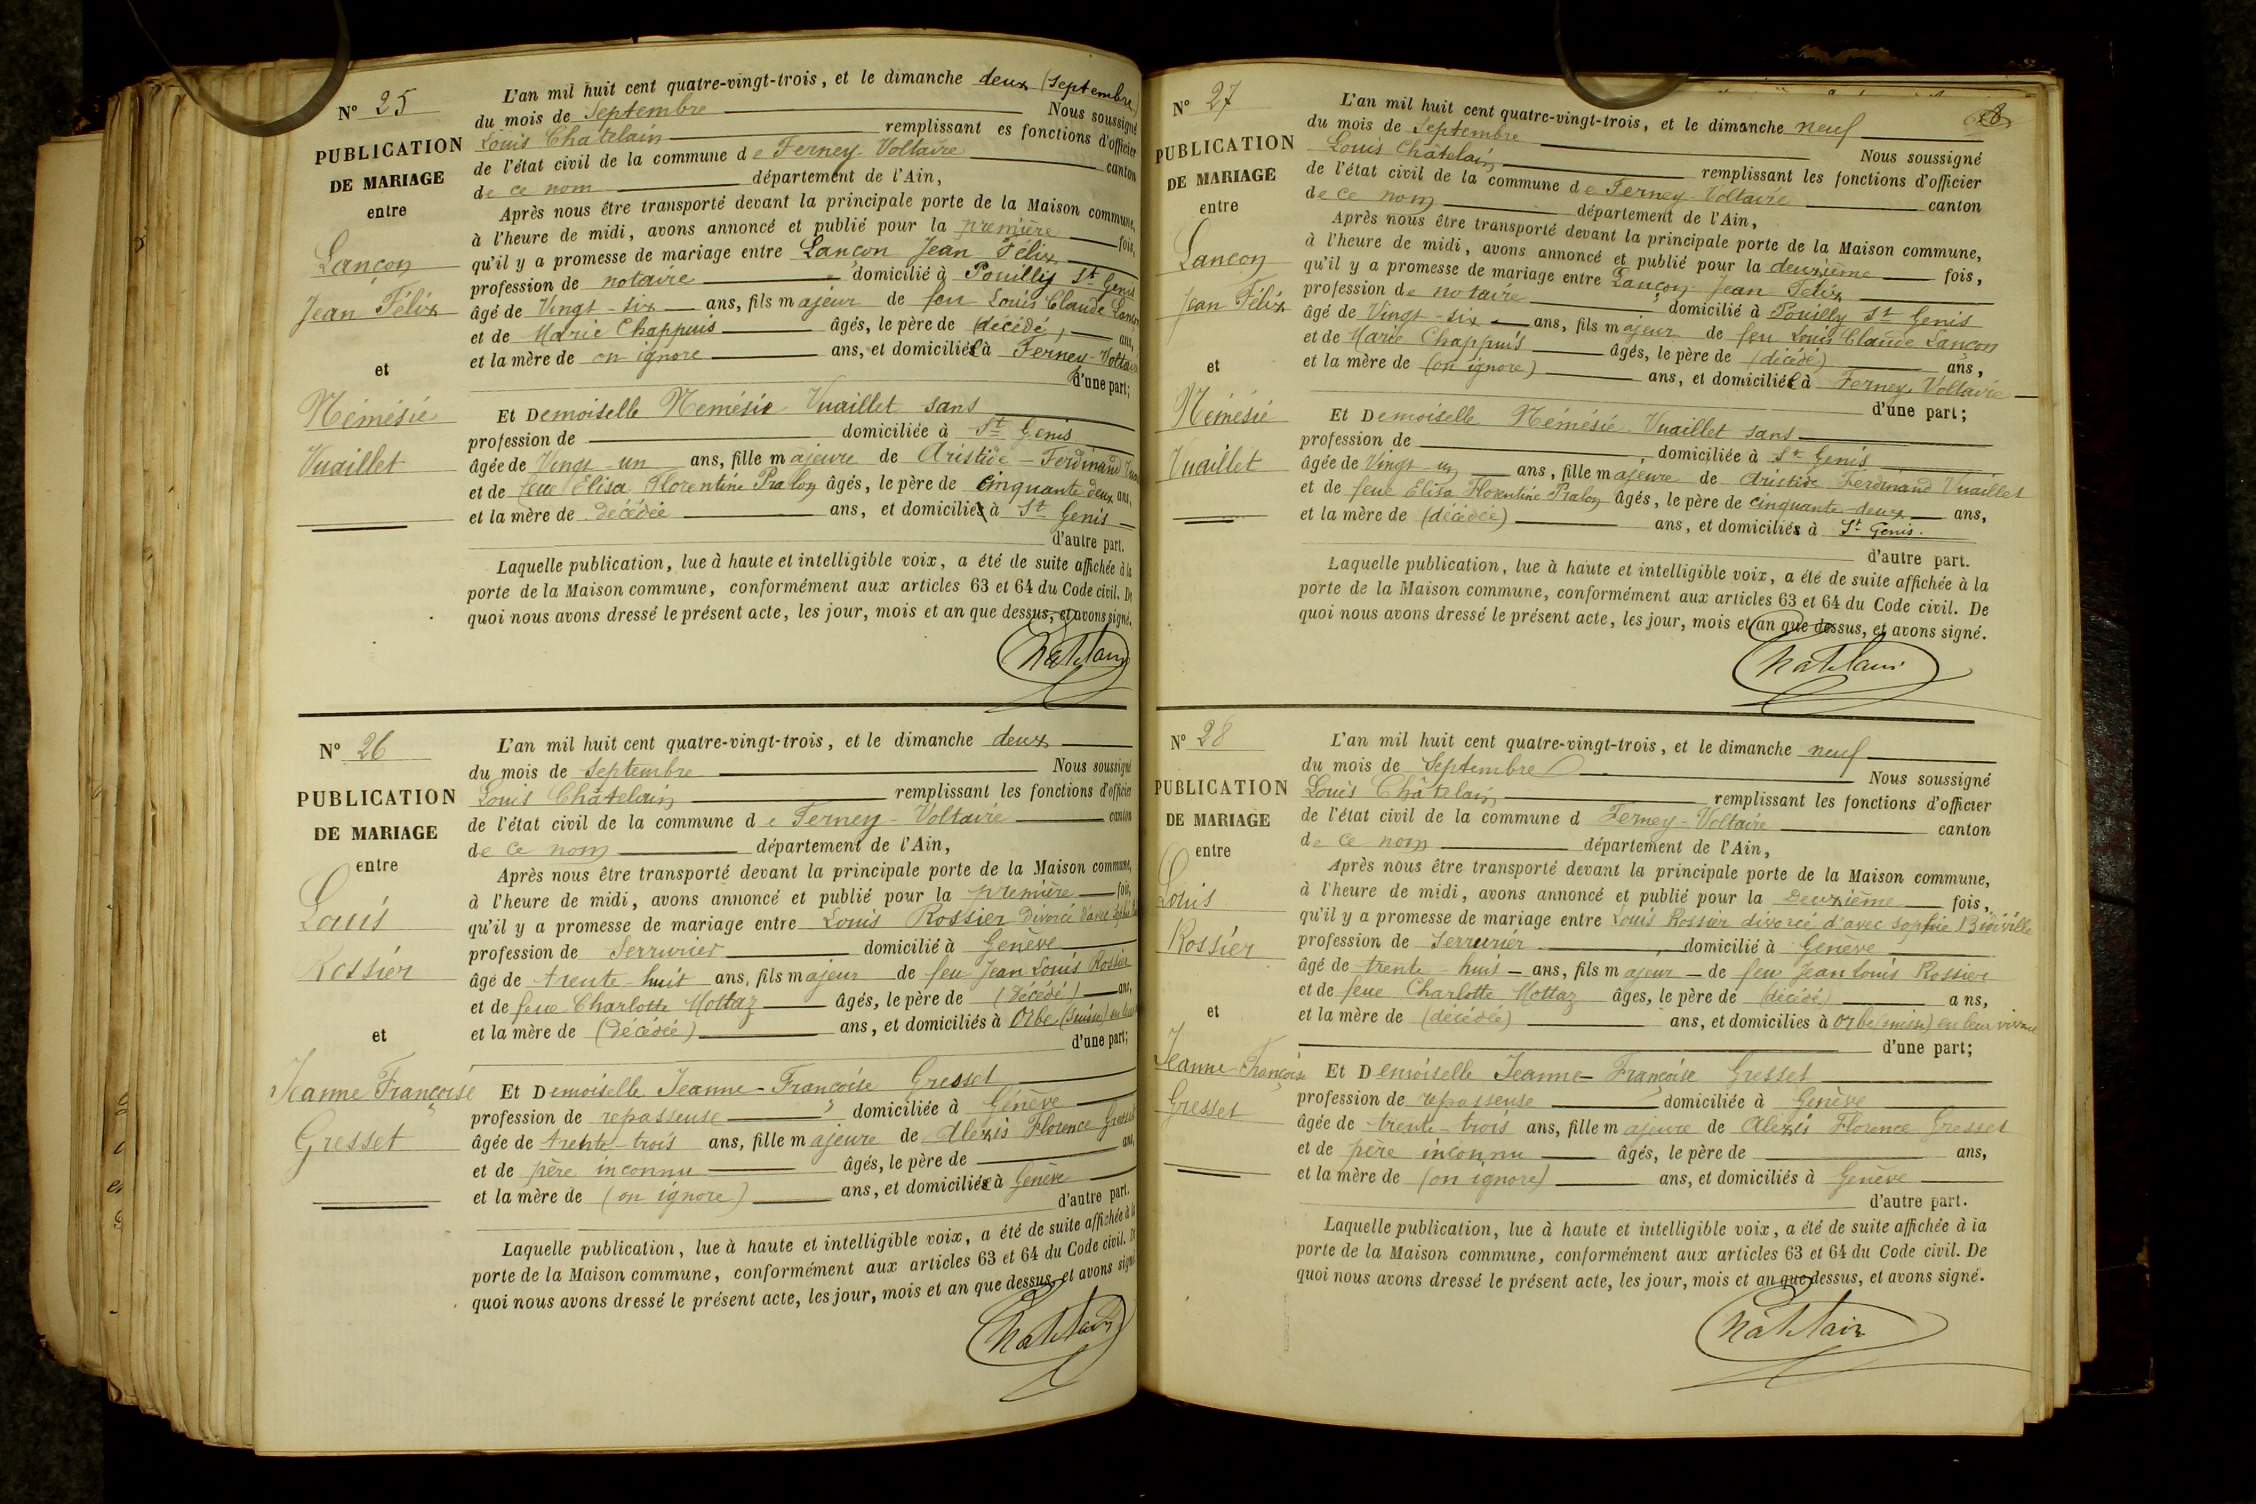 N° 25
PUBLICATION
DE MARIAGE
entre
Lançon
Jean Félix
et
Némésie
Vuaillet
L'an mil huit cent quatre-vingt-trois, et le dimanche deux (septembre)
du mois de Septembre Nous soussigné
Louis Châtelain remplissant es fonctions d'officier
de l'état civil de la commune de Ferney-Voltaire canton
de ce nom département de l'Ain,
Après nous être transporté devant la principale porte de la Maison commune,
à l'heure de midi, avons annoncé et publié pour la première fois,
qu'il y a promesse de mariage entre Lançon Jean Félix
profession de notaire domicilié à Pouilly St Genis
âgé de Vingt-six ans, fils majeur de feu Louis Claude
et de Marie Chappuis âgés, le père de (décédé) ans,
et la mère de on ignore ans, et domiciliés à Ferney-Voltaire
d'une part;
Et Demoiselle Némésie Vuaillet sans
profession de domiciliée à St Genis
âgée de Vingt-un ans, fille majeure de Aristide-Ferdinand
et de feue Elisa Florentine Pralon âgés, le père de cinquante deux ans,
et la mère de décédée ans, et domiciliés à St Genis
d'autre part.
Laquelle publication, lue à haute et intelligible voix, a été de suite affichée à la
porte de la Maison commune, conformément aux articles 63 et 64 du Code civil. De
quoi nous avons dressé le présent acte, les jour, mois et an que dessus, et avons signé.
Châtelain
N° 26
PUBLICATION
DE MARIAGE
entre
Louis
Rossier
et
Jeanne Françoise
Gresset
L'an mil huit cent quatre-vingt-trois, et le dimanche deux
du mois de Septembre Nous soussigné
Louis Châtelain remplissant les fonctions d'officier
de l'état civil de la commune de Ferney-Voltaire canton
de ce nom département de l'Ain,
Après nous être transporté devant la principale porte de la Maison commune,
à l'heure de midi, avons annoncé et publié pour la première fois,
qu'il y a promesse de mariage entre Louis Rossier Divorcé d'avec Sophie
profession de Serrurier domicilié à Genève
âgé de trente-huit ans, fils majeur de feu Jean Louis Rossier
et de feue Charlotte Mottaz âgés, le père de (Décédé) ans,
et la mère de (Décédée) ans, et domiciliés à Orbe (Suisse) en leur
d'une part;
Et Demoiselle Jeanne-Françoise Gresset
profession de repasseuse domiciliée à Genève
âgée de trente-trois ans, fille majeure de Alexis Florence Gresset
et de père inconnu âgés, le père de ans,
et la mère de (on ignore) ans, et domiciliés à Genève
d'autre part.
Laquelle publication, lue à haute et intelligible voix, a été de suite affichée à la
porte de la Maison commune, conformément aux articles 63 et 64 du Code civil. De
quoi nous avons dressé le présent acte, les jour, mois et an que dessus, et avons signé
Châtelain
N° 27
PUBLICATION
DE MARIAGE
entre
Lançon
Jean Félix
et
Némésie
Vuaillet
L'an mil huit cent quatre-vingt-trois, et le dimanche neuf
du mois de Septembre Nous soussigné
Louis Châtelain remplissant les fonctions d'officier
de l'état civil de la commune de Ferney-Voltaire canton
de ce nom département de l'Ain,
Après nous être transporté devant la principale porte de la Maison commune,
à l'heure de midi, avons annoncé et publié pour la deuxième fois,
qu'il y a promesse de mariage entre Lançon Jean Félix
profession de notaire domicilié à Pouilly St Genis
âgé de Vingt-six ans, fils majeur de feu Louis Claude Lançon
et de Marie Chappuis âgés, le père de (décédé) ans,
et la mère de (on ignore) ans, et domiciliés à Ferney Voltaire
d'une part;
Et Demoiselle Némésie Vuaillet sans
profession de domiciliée à St Genis
âgée de Vingt-un ans, fille majeure de Aristide Ferdinand Vuaillet
et de feue Elisa Florentine Pralon âgés, le père de cinquante-deux ans,
et la mère de (décédée) ans, et domiciliés à St Genis.
d'autre part.
Laquelle publication, lue à haute et intelligible voix, a été de suite affichée à la
porte de la Maison commune, conformément aux articles 63 et 64 du Code civil. De
quoi nous avons dressé le présent acte, les jour, mois et an que dessus, et avons signé.
Châtelain
N° 28
PUBLICATION
DE MARIAGE
entre
Louis
Rossier
et
Jeanne Françoise
Gresset
L'an mil huit cent quatre-vingt-trois, et le dimanche neuf
du mois de Septembre Nous soussigné
Louis Châtelain remplissant les fonctions d'officier
de l'état civil de la commune d Ferney-Voltaire canton
de ce nom département de l'Ain,
Après nous être transporté devant la principale porte de la Maison commune,
à l'heure de midi, avons annoncé et publié pour la Deuxième fois,
qu'il y a promesse de mariage entre Louis Rossier divorcé d'avec Sophie
profession de Serrurier domicilié à Genève
âgé de trente-huit ans, fils majeur de feu Jean Louis Rossier
et de feue Charlotte Mottaz âges, le père de (décédé) ans,
et la mère de (décédée) ans, et domicilies à Orbe (suisse) en leur vivant
d'une part;
Et Demoiselle Jeanne-Françoise Gresset
profession de repasseuse domiciliée à Genève
âgée de trente-trois ans, fille majeure de Alexis Florence Gresset
et de père inconnu âgés, le père de ans,
et la mère de (on ignore) ans, et domiciliés à Genève
d'autre part.
Laquelle publication, lue à haute et intelligible voix, a été de suite affichée à la
porte de la Maison commune, conformément aux articles 63 et 64 du Code civil. De
quoi nous avons dressé le présent acte, les jour, mois et an que dessus, et avons signé.
Châtelain